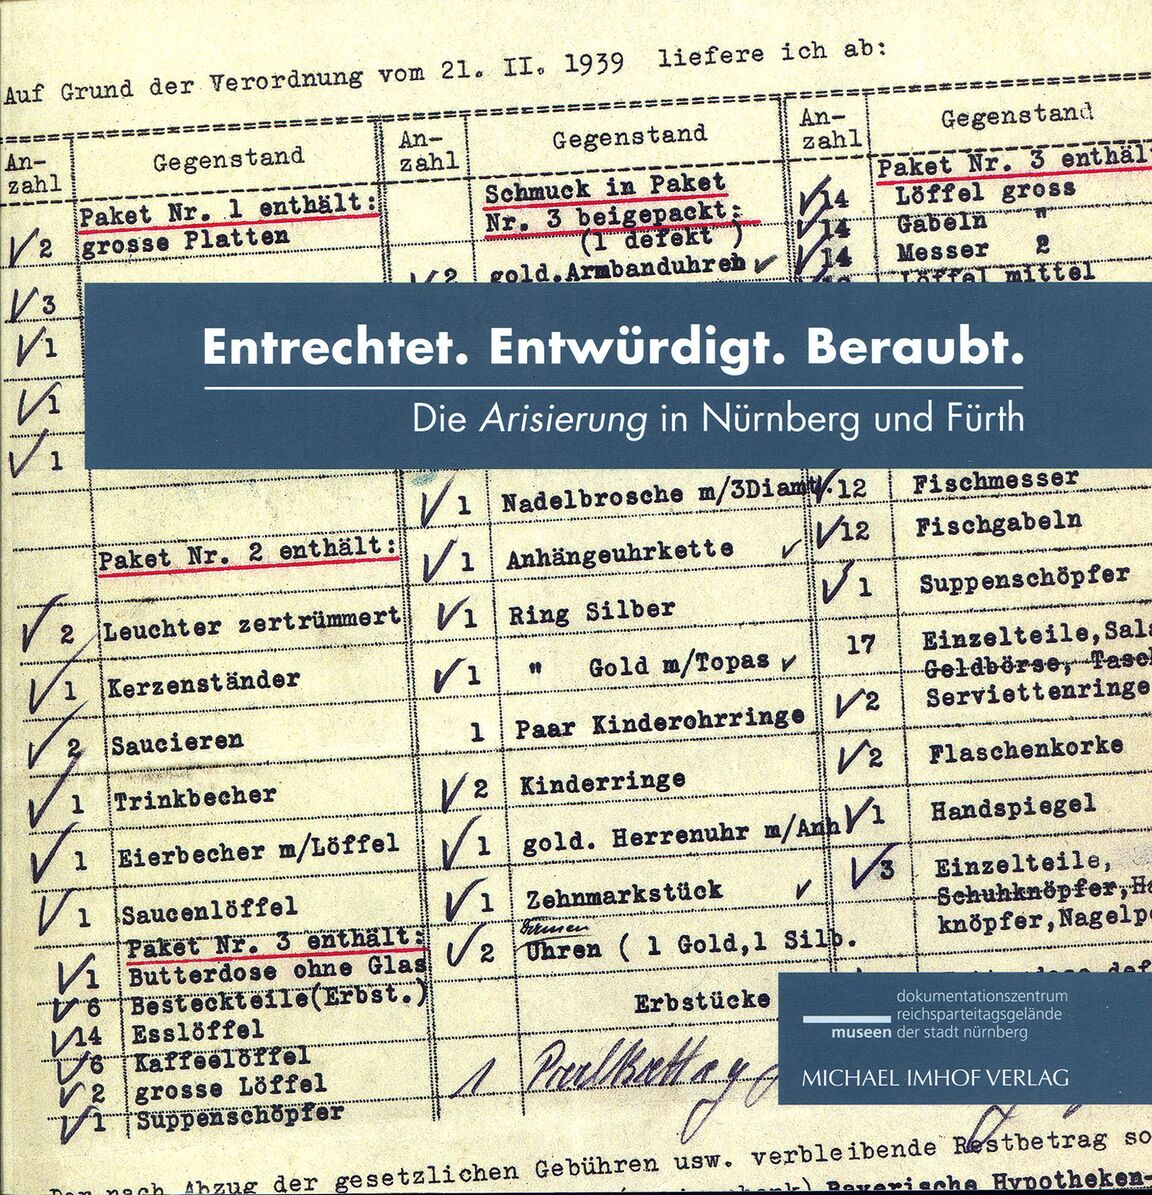 Auf Grund der Verordnung vom 21. II. 1939 liefere ich ab:
An-
zahl
Gegenstand
Paket Nr. 1 enthält:
2 grosse Platten
3
1
1
1
Paket Nr. 2 enthält:
2 Leuchter zertrümmert
1 Kerzenständer
2 Saucieren
1 Trinkbecher
1 Eierbecher m/Löffel
1 Saucenlöffel
Paket Nr. 3 enthält:
1 Butterdose ohne Glas
6 Besteckteile(Erbst.)
14 Esslöffel
6 Kaffeelöffel
2 grosse Löffel
1 Suppenschöpfer
An-
zahl
Gegenstand
Schmuck in Paket
Nr. 3 beigepackt:
(1 defekt )
2 gold.Armbanduhren
Entrechtet. Entwürdigt. Beraubt.
Die Arisierung in Nürnberg und Fürth
1 Nadelbrosche m/3Diamt.
1 Anhängeuhrkette
1 Ring Silber
1 " Gold m/Topas
1 Paar Kinderohrringe
2 Kinderringe
1 gold. Herrenuhr m/Anh
1 Zehnmarkstück
2 Uhren ( 1 Gold,1 Silb.
Erbstücke
1
An-
zahl
Gegenstand
Paket Nr. 3 enthäl
14 Löffel gross
14 Gabeln "
14 Messer
Löffel mittel
12 Fischmesser
12 Fischgabeln
1 Suppenschöpfer
17 Einzelteile,
Geldbörse,
2 Serviettenringe
2 Flaschenkorke
1 Handspiegel
3 Einzelteile,
Schuhknöpfer,
knöpfer,
dokumentationszentrum
reichsparteitagsgelände
museen der stadt nürnberg
MICHAEL IMHOF VERLAG
Der nach Abzug der gesetzlichen Gebühren usw. verbleibende Restbetrag so
Bayerische Hypotheken-